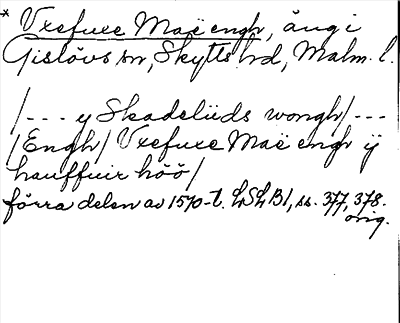 * Vxefuxe Maë engh, äng i
Gislövs sn, Skytts hd, Malm. l.
/--- y Skadelüds wongh/---
/Engh/ Vxefuxe Maë engh ÿ
hauffuir höö/
förra delen av 1570-t. LSLB1, ss. 377, 378.
orig.